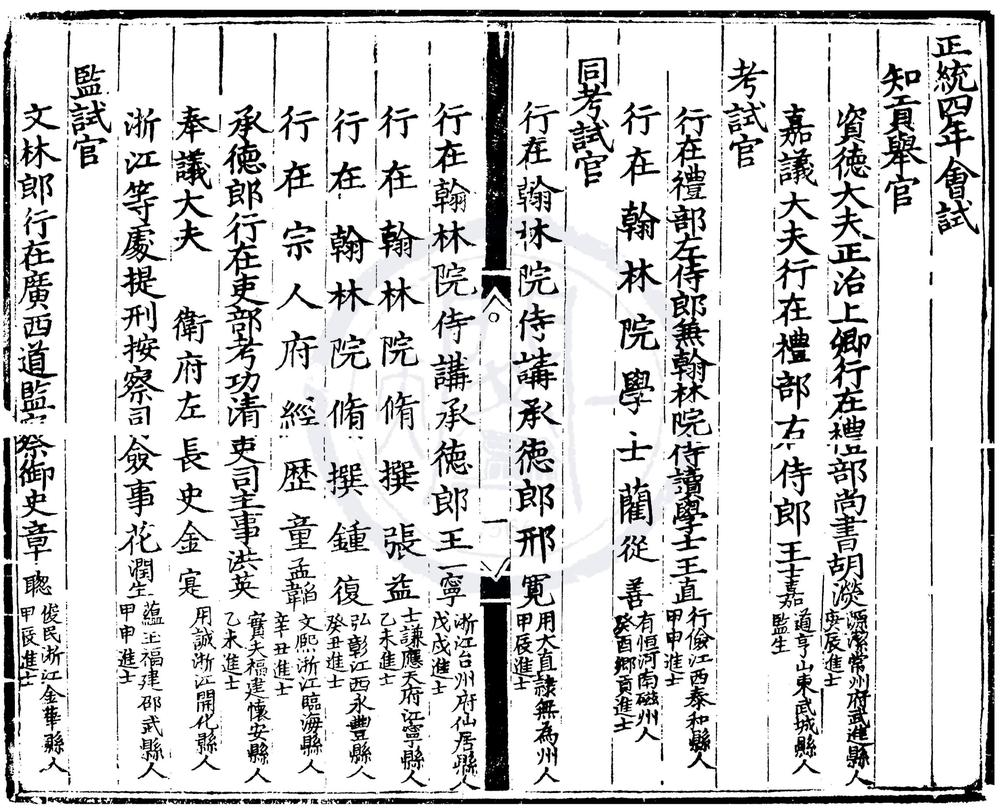 正統四年會試
知貢舉官
資德大夫正治上卿行在禮部尚書胡濙 源潔常州府武進縣人
庚辰進士
嘉議大夫行在禮部右侍郎王士嘉 道亨山東武城縣人
監生
考試官
行在禮部左侍郎兼翰林院侍讀學士王直 行儉江西泰和縣人
甲申進士
行在翰林院學士藺從善 有恒河南磁州人
癸酉鄉貢進士
同考試官
行在翰林院侍講承德郎邢寬 用大直隸無為州人
甲辰進士
一
行在翰林院侍講承德郎王一寧 浙江台州府仙居縣人
戊戌進士
行在翰林院脩撰張益 士謙應天府江寧縣人
乙未進士
行在翰林院脩撰鍾復 弘彰江西永豐縣人
癸丑進士
行在宗人府經歷童孟韜 文熙浙江臨海縣人
辛丑進士
承德郎行在吏部考功清吏司主事洪英 實夫福建懷安縣人
乙未進士
奉議大夫 衛府左長史金寔 用誠浙江開化縣人
浙江等處提刑按察司僉事花潤生 蘊玉福建邵武縣人
甲申進士
監試官
文林郎行在廣西道監察御史章聰 俊民浙江金華縣人
甲辰進士